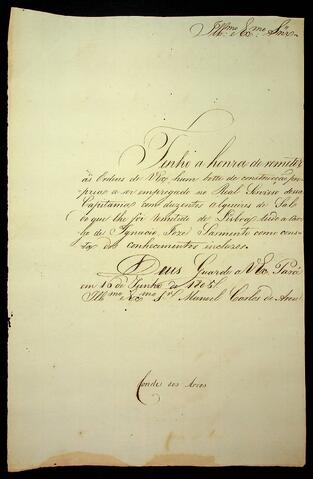 Illmo e Exmo Snr
Tenho a honra de remetter
ás Ordens de VExa hum bote de construcção pro-
pria a ser empregado no Real Serviso dessa
Capitania com duzentos alqueires de Sal
do que lhe foi remetido de Lisboa tudo a car-
go de Ignacio Joze Sarmento como cons-
ta dos conhecimentos inclozos.
Deus Guarde a VExa Pará
em 16 de Junho de 1805
Illmo e Exmo Snr Manoel Carlos de Abreu
Conde dos Arcos